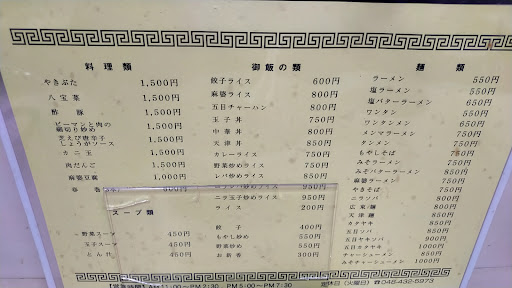 料理類
やきぶた 1,500円
八宝菜 1,500円
酢豚 1,500円
ピーマンと肉の細切り炒め 1,500円
芝えび唐辛子しょうがソース 1,500円
カニ玉 1,500円
肉だんご 1,500円
麻婆豆腐 1,000円
600円
スープ類
野菜スープ 450円
玉子スープ 450円
とん汁 450円
御飯の類
餃子ライス 600円
麻婆ライス 800円
五目チャーハン 800円
玉子丼 750円
中華丼 800円
天津丼 850円
カレーライス 750円
野菜炒めライス 750円
レバ炒めライス 850円
ニラレバ炒めライス 950円
ニラ玉子炒めライス 950円
ライス 200円
餃子 400円
もやし炒め 550円
野菜炒め 550円
お新香 300円
麺類
ラーメン 550円
塩ラーメン 550円
塩バターラーメン 650円
ワンタン 550円
ワンタンメン 650円
メンマラーメン 750円
タンメン 750円
もやしそば 750円
みそラーメン 750円
みそバターラーメン 850円
麻婆ラーメン
やきそば 750円
ニラソバ 800円
広東麺 800円
天津麺 850円
カタヤキ 850円
五目ソバ 850円
五目ヤキソバ 900円
五目カタヤキ 1000円
チャーシューメン 850円
みそチャーシューメン 1000円
【営業時間】AM11:00〜PM2:30 PM5:00〜PM7:30 定休日(火曜日) ☎048-432-5973